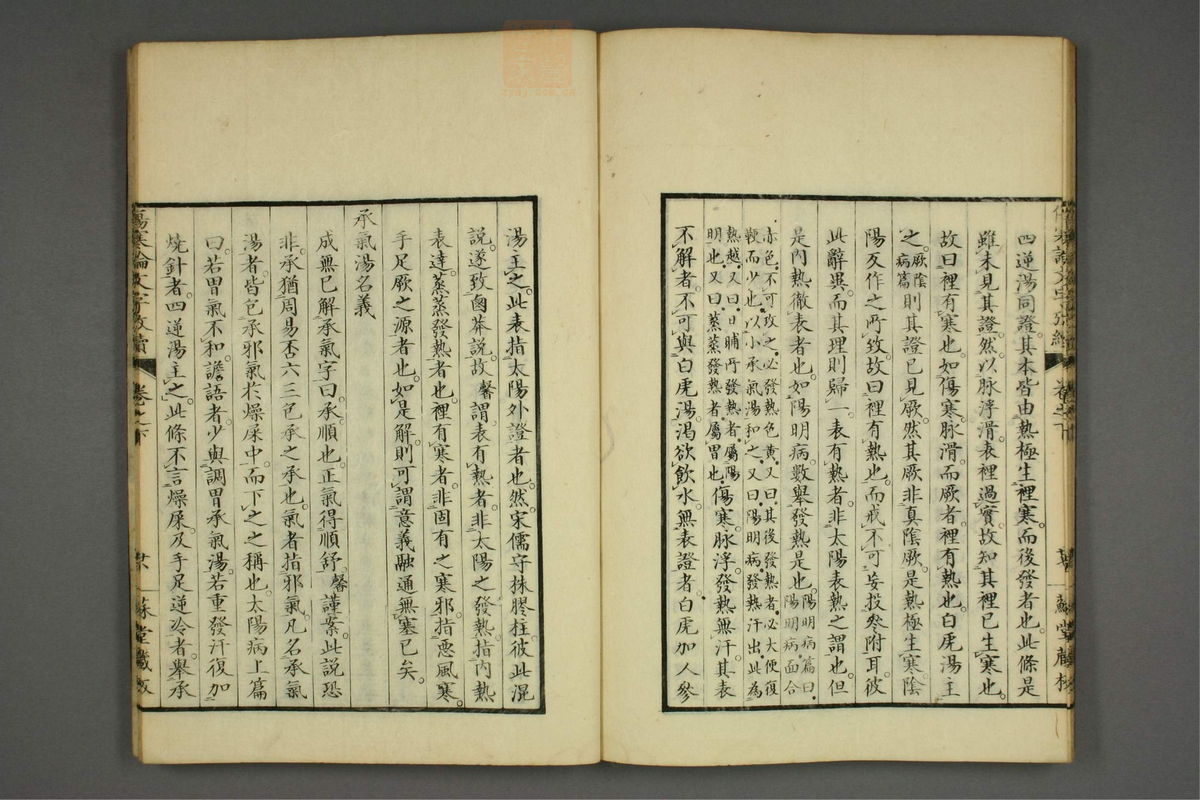 四逆湯同證其本皆由熱極生裡寒而後發者也此條是
雖未見其證然以脉浮滑表裡過實故知其裡已生寒也
故曰裡有寒也如傷寒脉滑而厥者裡有熱也白虎湯主
之厥陰病篇則其證已見厥然其厥非真陰厥是熱極生寒陰
陽反作之所致故曰裡有熱也而戒不可妄投參附耳彼
此辭異而其理則歸一表有熱者非太陽表熱之謂也但
是內熱徹表者也如陽明病數舉發熱是也陽明病篇曰陽明病面合
赤色不可攻之必發熱色黃又曰其後發熱者必大便復
鞕而少也以小承氣湯和之又曰陽明病發熱汗出此為
熱越又曰日晡所發熱者屬陽
明也又曰蒸蒸發熱者屬胃也傷寒脉浮發熱無汗其表
不解者不可與白虎湯渴欲飲水無表證者白虎加人參
湯主之此表指太陽外證者也然宋儒守株膠柱彼此混
說遂致鹵莽說故馨謂表有熱者非太陽之發熱指內熱
表達蒸蒸發熱者也裡有寒者非固有之寒邪指惡風寒
手足厥之源者也如是解則可謂意義融通無塞已矣
承氣湯名義
成無已解承氣字曰承順也正氣得順舒馨謹案此說恐
非承猶周易否六三包承之承也氣者指邪氣凡名承氣
湯者皆包承邪氣於燥屎中而下之之稱也太陽病上篇
曰若胃氣不和譫語者少與調胃承氣湯若重發汗復加
燒針者四逆湯主之此條不言燥屎及手足逆冷者舉承
傷寒論文字攷續
卷之下